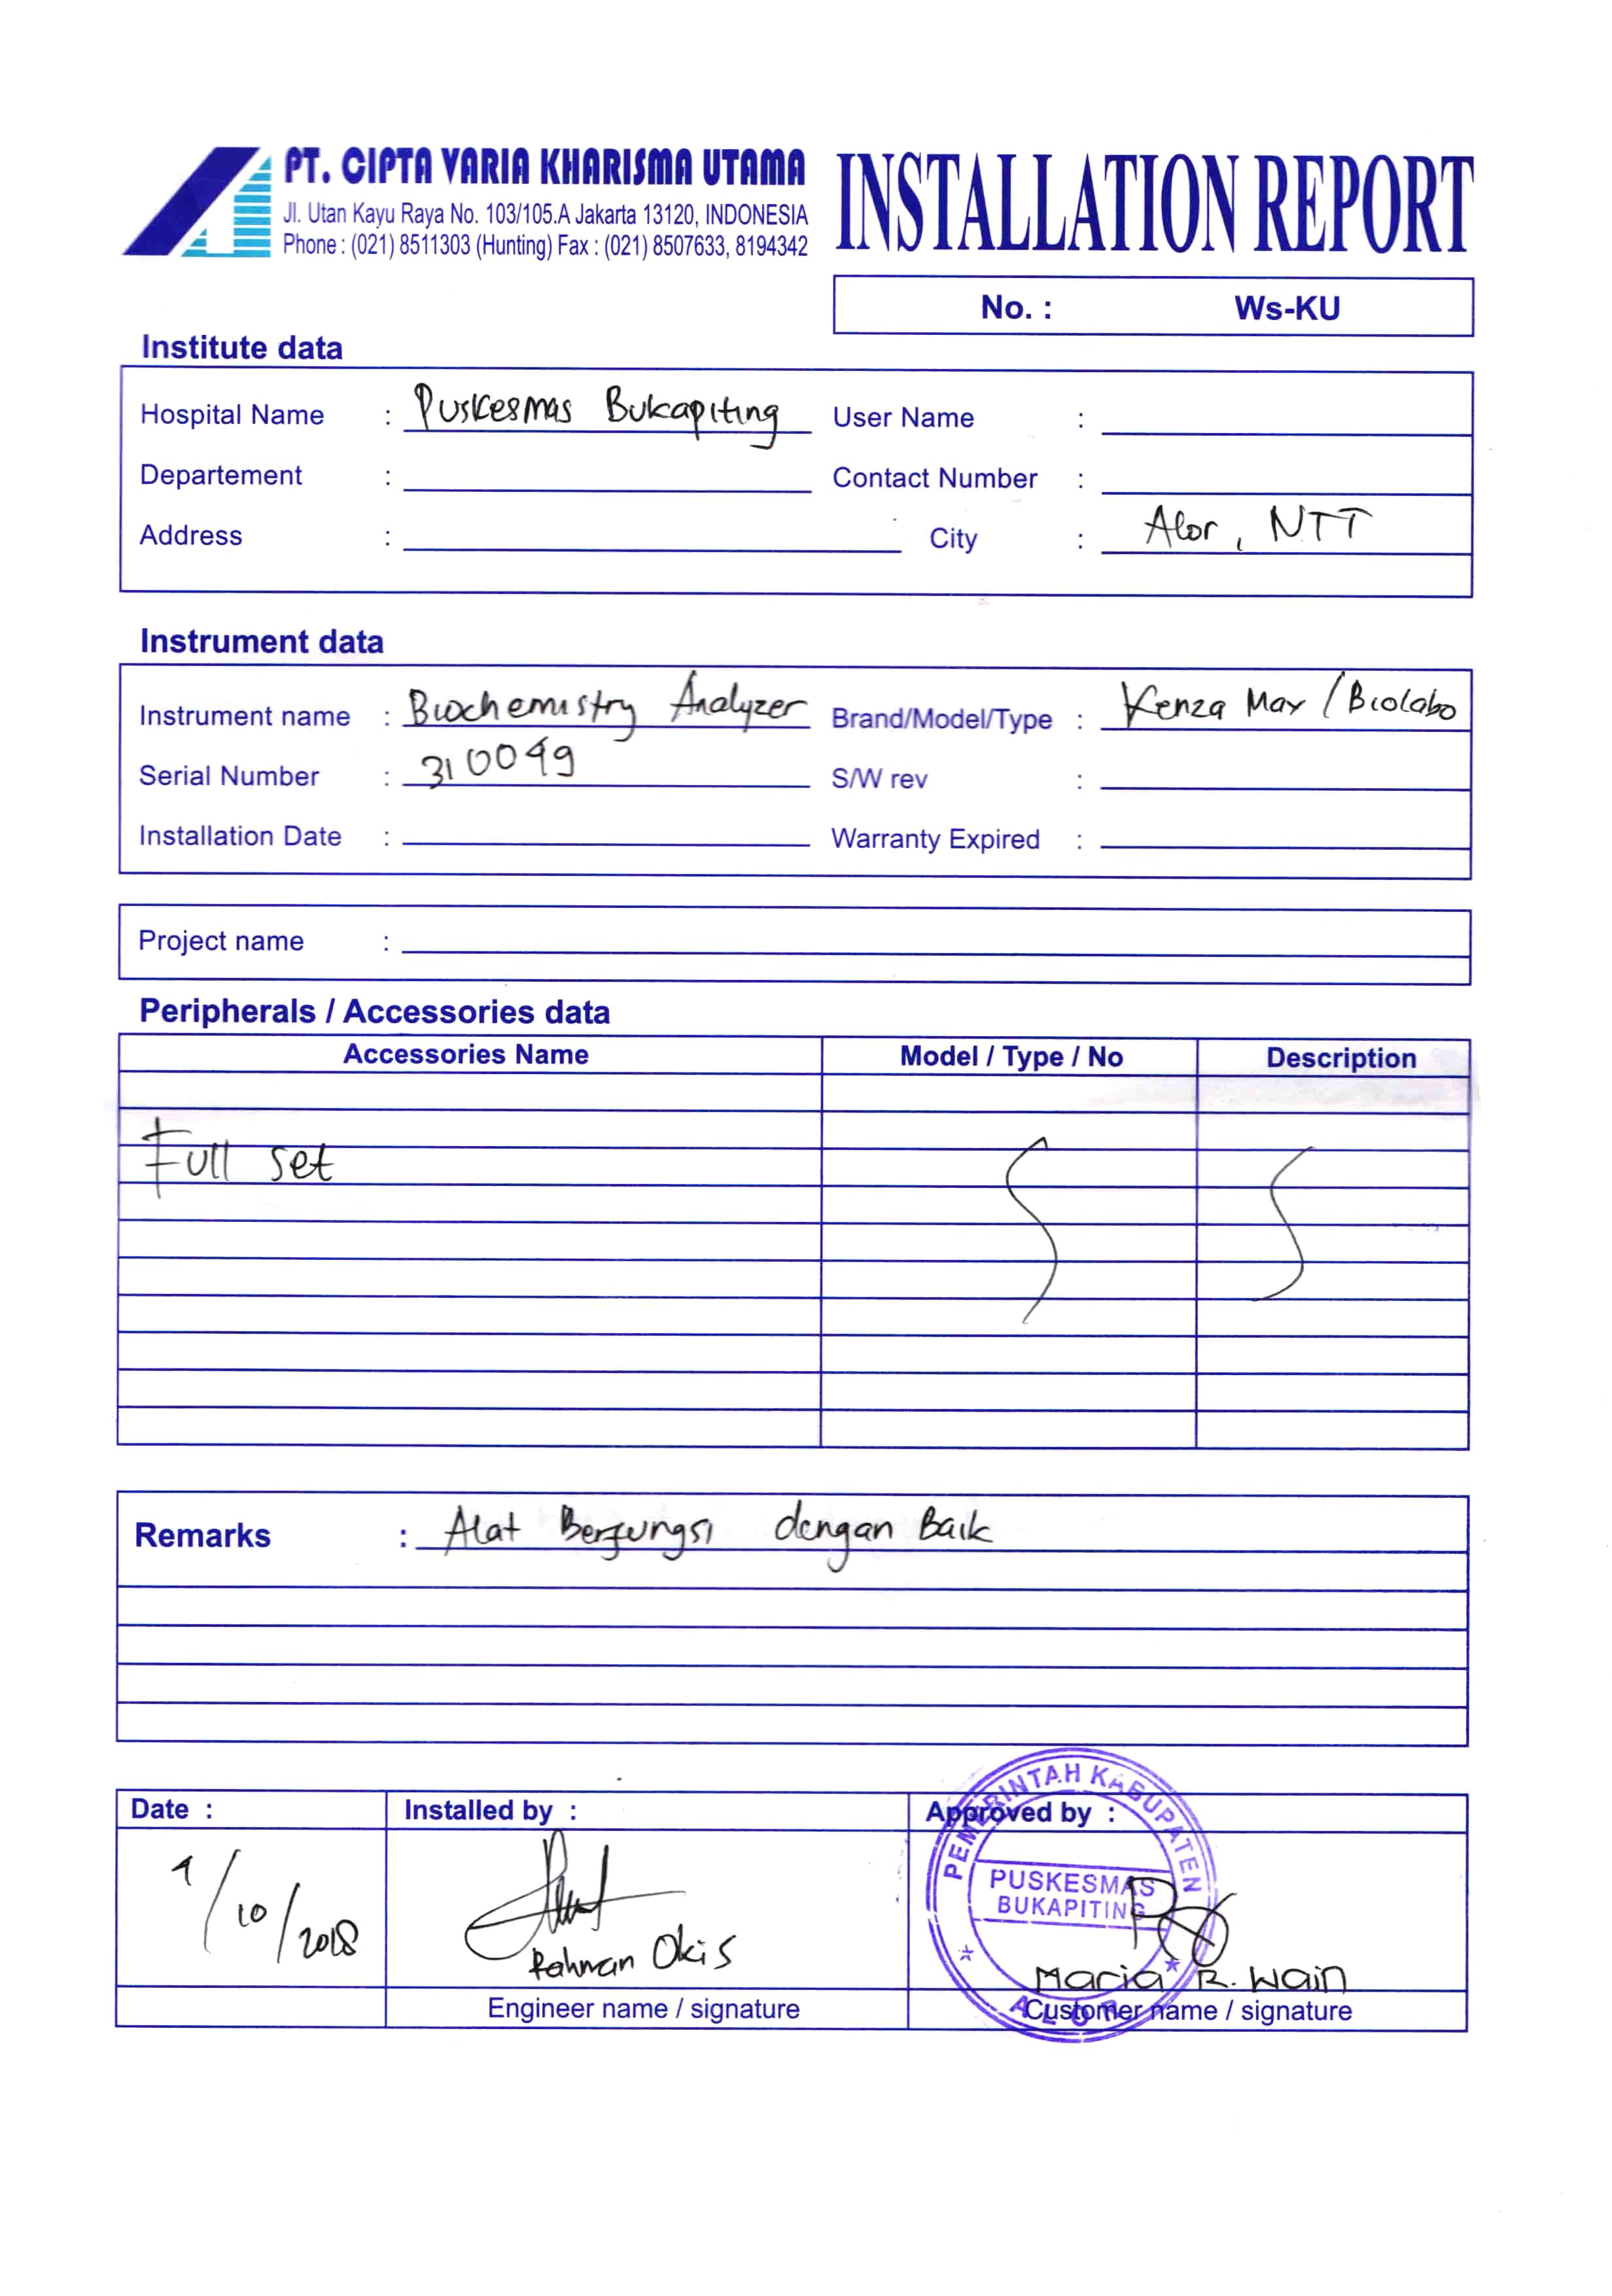 PT. CIPTA VARIA KHARISMA UTAMA
Jl. Utan Kayu Raya No. 103/105.A Jakarta 13120, INDONESIA
Phone : (021) 8511303 (Hunting) Fax : (021) 8507633, 8194342
INSTALLATION REPORT
No. : Ws-KU
Institute data
Hospital Name : Puskesmas Bukapiting User Name :
Departement : Contact Number :
Address : City : Alor, NTT
Instrument data
Instrument name : Biochemistry Analyzer Brand/Model/Type : Kenza Max / Biolabo
Serial Number : 310049 S/W rev :
Installation Date : Warranty Expired :
Project name :
Peripherals / Accessories data
Accessories Name Model / Type / No Description
Full set
Remarks : Alat Berfungsi dengan Baik
Date : Installed by : Approved by :
PEMERINTAH KABUPATEN
PUSKESMAS
BUKAPITING
ALOR
/10/2018
Rahman Okis
Maria R. Wain
Engineer name / signature Customer name / signature